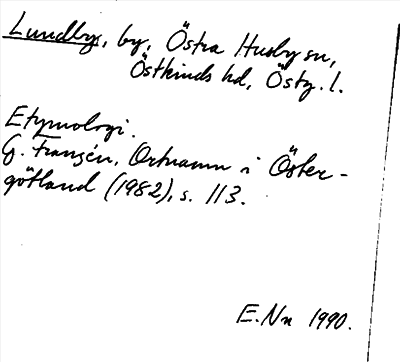 Lundby, by, Östra Husby sn,
Östkinds hd, Östg. l.
Etymologi.
G. Franzén, Ortnamn i Öster-
götland (1982), s. 113.
E. Nn 1990.